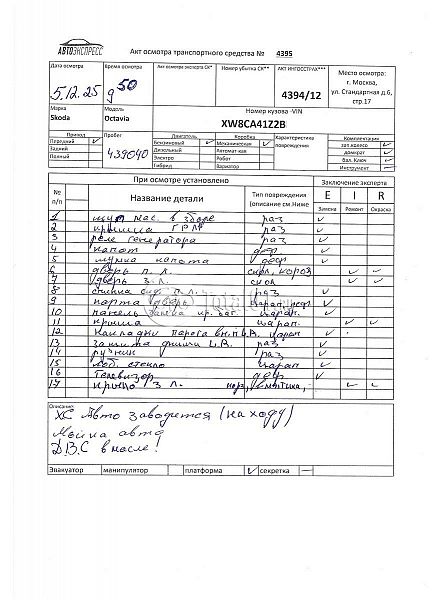 АВТОЭКСПРЕСС
Акт осмотра транспортного средства № 4395
Дата осмотра Время осмотра Акт осмотра эксперта СК* Номер убытка СК** АКТ ИНГОССТРАХ***
5.12.25 9 50 4394/12
Место осмотра:
г. Москва,
ул. Стандартная д.6,
стр.17
Марка Модель Номер кузова -VIN
Skoda Octavia XW8CA41Z2B
Привод Пробег Двигатель Коробка Характеристика повреждения Комплектация
Передний ✓ Бензиновый ✓ Механическая ✓ зап.колесо ✓
Задний 439040 Дизельный Автомат-кая домкрат ✓
Полный Электро Робот бал. Ключ ✓
Гибрид Вариатор Инструмент –
При осмотре установлено Заключение эксперта
№ п/п Название детали Тип повреждения (описание см.Ниже E I R
Замена Ремонт Окраска
1 щуп мас. в сборе раз ✓
2 крышка ГРМ раз ✓
3 реле генератора раз ✓
4 капот деф ✓
5 шумка капота деф ✓
6 дверь п.л. скол, короз ✓ ✓
7 дверь з.л. скол ✓ ✓
8 спинка сид. п.л. раз ✓
9 карта дверь царап, деф ✓
10 панель замка кр. баг. царап. ✓
11 крыша царап. ✓ ✓
12 накладки порога вн. царап ✓
13 раз ✓
14 раз ✓
15 лоб. стекло царап ✓
16 телевизор деф ✓
17 крыло з л. кор, ✓ ✓
Описание:
ХС Авто заводется (на ходу)
Мойка авто
ДВС в масле!
Эвакуатор манипулятор платформа ✓ секретка —